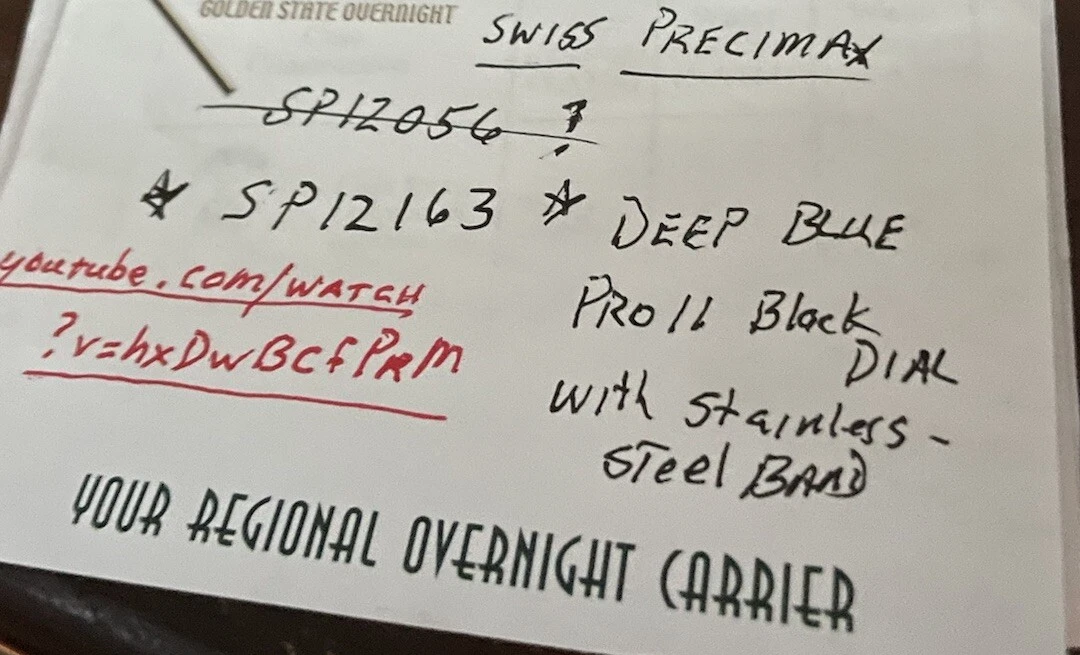 GOLDEN STATE OVERNIGHT
SWISS PRECIMAX
SP12056 ?
* SP12163 * DEEP BLUE
PRO II Black
DIAL
with Stainless-
Steel BAND
youtube.com/WATCH
?v=hxDwBCfPRM
YOUR REGIONAL OVERNIGHT CARRIER